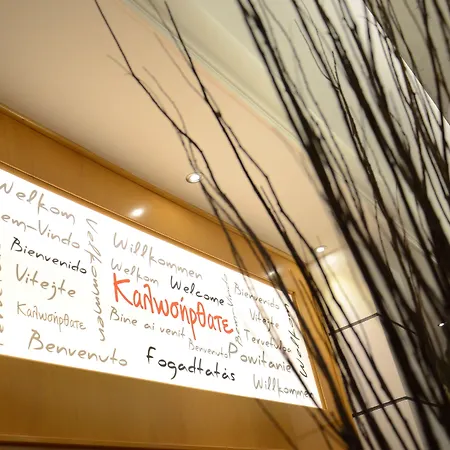 Welkom
Bem-Vindo
Willkommen
Bienvenido
Welkom
Welcome
Bienvenido
Vitejte
Καλωσήρθατε
Vitejte
Καλωσήρθατε
Bine ai venit
Tervetuloa
Benvenuto
Benvenuto
Powitanie
Fogadtatás
Willkommen
Welkom